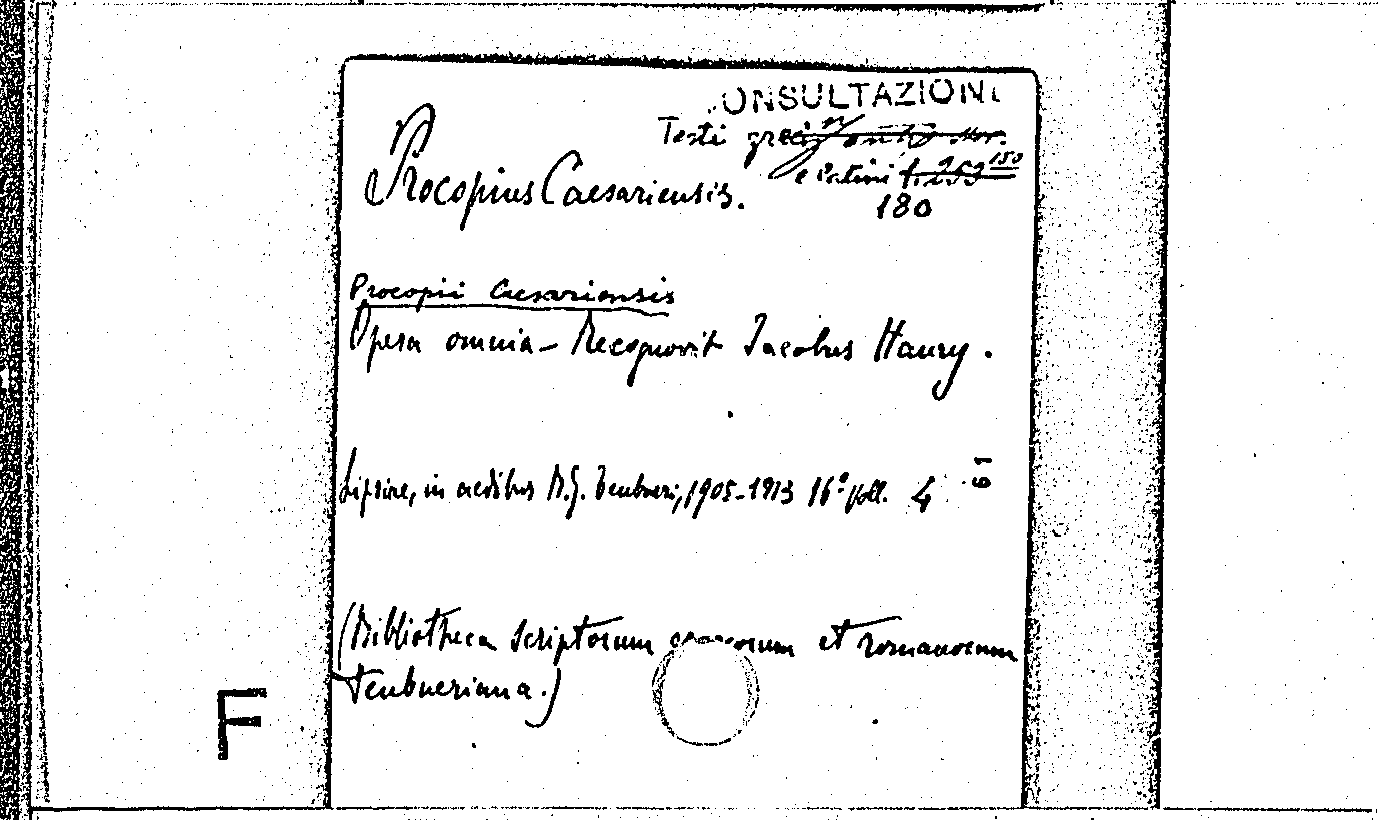 CONSULTAZIONE
Testi greci
e latini
180
Procopius Caesariensis.
Procopii Caesariensis
Opera omnia - Recognovit Jacobus Haury.
Lipsiae, in aedibus B. G. Teubneri, 1905-1913 16° voll. 4
(Bibliotheca scriptorum graecorum et romanorum
Teubneriana.)
F